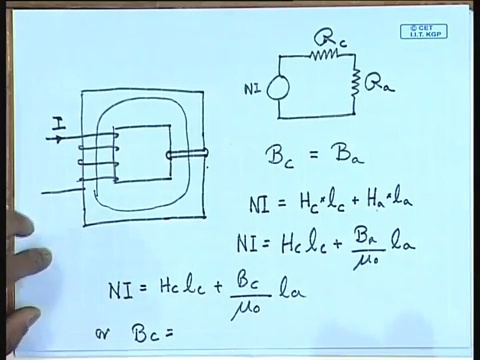 © CET
I.I.T. KGP
R_c
NI
R_a
I
B_c = B_a
NI = H_c * l_c + H_a * l_a
NI = H_c l_c + B_a/μ_0 l_a
NI = H_c l_c + B_c/μ_0 l_a
or B_c =